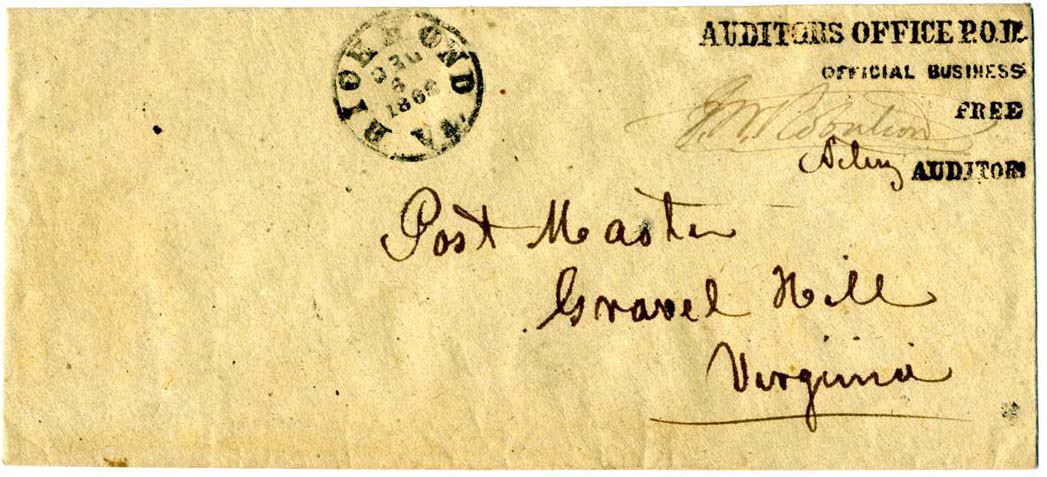 RICHMOND VA
DEC
6
186
AUDITORS OFFICE P.O.D.
OFFICIAL BUSINESS
FREE
Acting AUDITOR
Post Master
Gravel Hill
Virginia